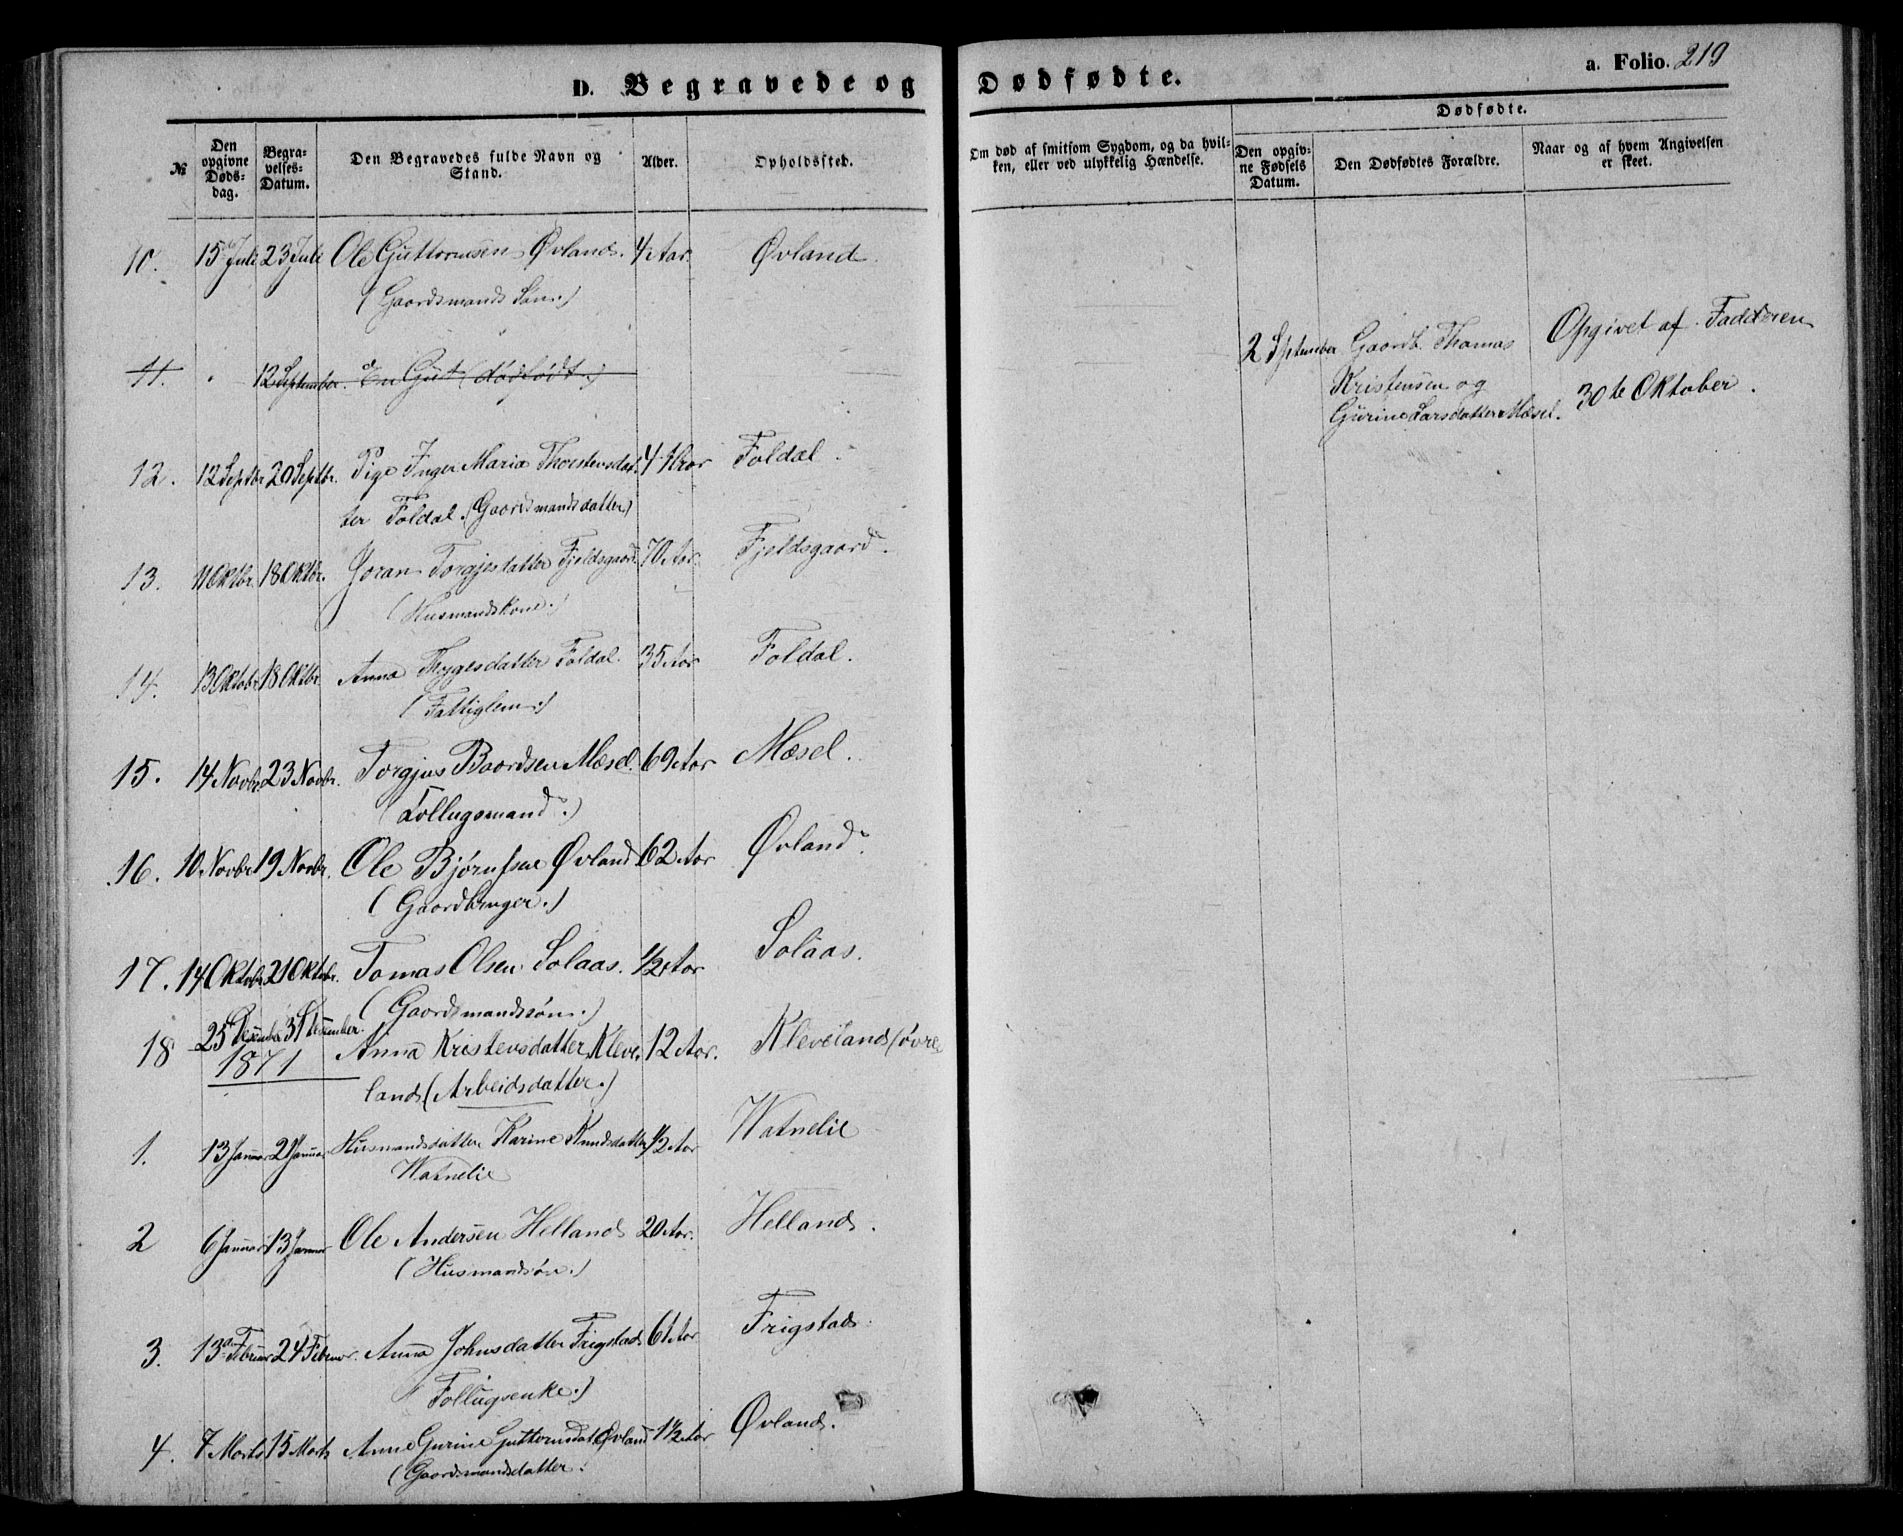 D. Begravede og Dødfødte.
a. Folio. 219
№ Den opgivne Dødsdag. Begravelses-Datum. Den Begravedes fulde Navn og Stand. Alder. Opholdssted. Om død af smitsom Sygdom, og da hvilken, eller ved ulykkelig Hændelse. Dødfødte. Den opgivne Fødsels Datum. Den Dødfødtes Forældre. Naar og af hvem Angivelsen er skeet.
10. 15de Juli 23 Juli Ole Guttormsen Øvland. 4 Aar. Øvland.
(Gaardsmands Søn.)
11. 12 September. En Gut (dødfødt.) 2 September Gaardb. Thomas Opgivet af Fadderen
Kristensen og 30te Oktober.
Gurine Larsdatter Mæsel.
12. 12 Septbr 20 Septbr. Pige Inger Maria Thorstensdat- 4 Aar Foldal.
ter Foldal. (Gaardsmandsdatter)
13. 11 Oktbr. 18 Oktbr. Joran Torgjesdatter Fjeldsgaard 70 Aar. Fjeldsgaard.
(Husmandskone.)
14. 13 Oktobr 18 Oktbr Anna Thygesdatter Foldal. 35 Aar Foldal.
(Fattiglem.)
15. 14 Novbr. 23 Novbr. Torgjus Baardsen Mæsel. 69 Aar Mæsel.
(Follugsmand.)
16. 10. Novbr 19 Novbr. Ole Bjørnssen Øvland 62 Aar Øvland.
(Gaardbruger.)
17. 14 Oktobr 21 Oktobr. Tomas Olsen Solaas. 1/2 Aar Solaas.
(Gaardsmandssøn.)
18 25 Desember 31 Desember. Anna Kristensdatter Kleve- 12 Aar. Kleveland (øvre
land (Arbeidsdatter.)
1871
1. 13 Januar 21 Januar Husmandsdatter Karine Knudsdatter 1/2 Aar Watnelie
Watnelie
2 6 Januar 13 Januar Ole Andersen Helland 20 Aar. Helland.
(Husmandsøn.)
3. 13de Februar 24 Februar. Anna Johnsdatter Frigstad 61 Aar Frigstad.
(Follugsenke.)
4. 7 Marts 15 Marts Anne Gurine Guttormsdat. Øvland 1 1/2 Aar Øvland.
(Gaardsmandsdatter.